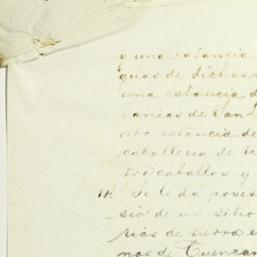 o una estancia
guas de dichas
una estancia d
canias de San L
nos estancia de
caballeria de ti
tro caballos y
14 Se le dá poses
sio de un sitio
rias de tierra e
nos de Cuencam